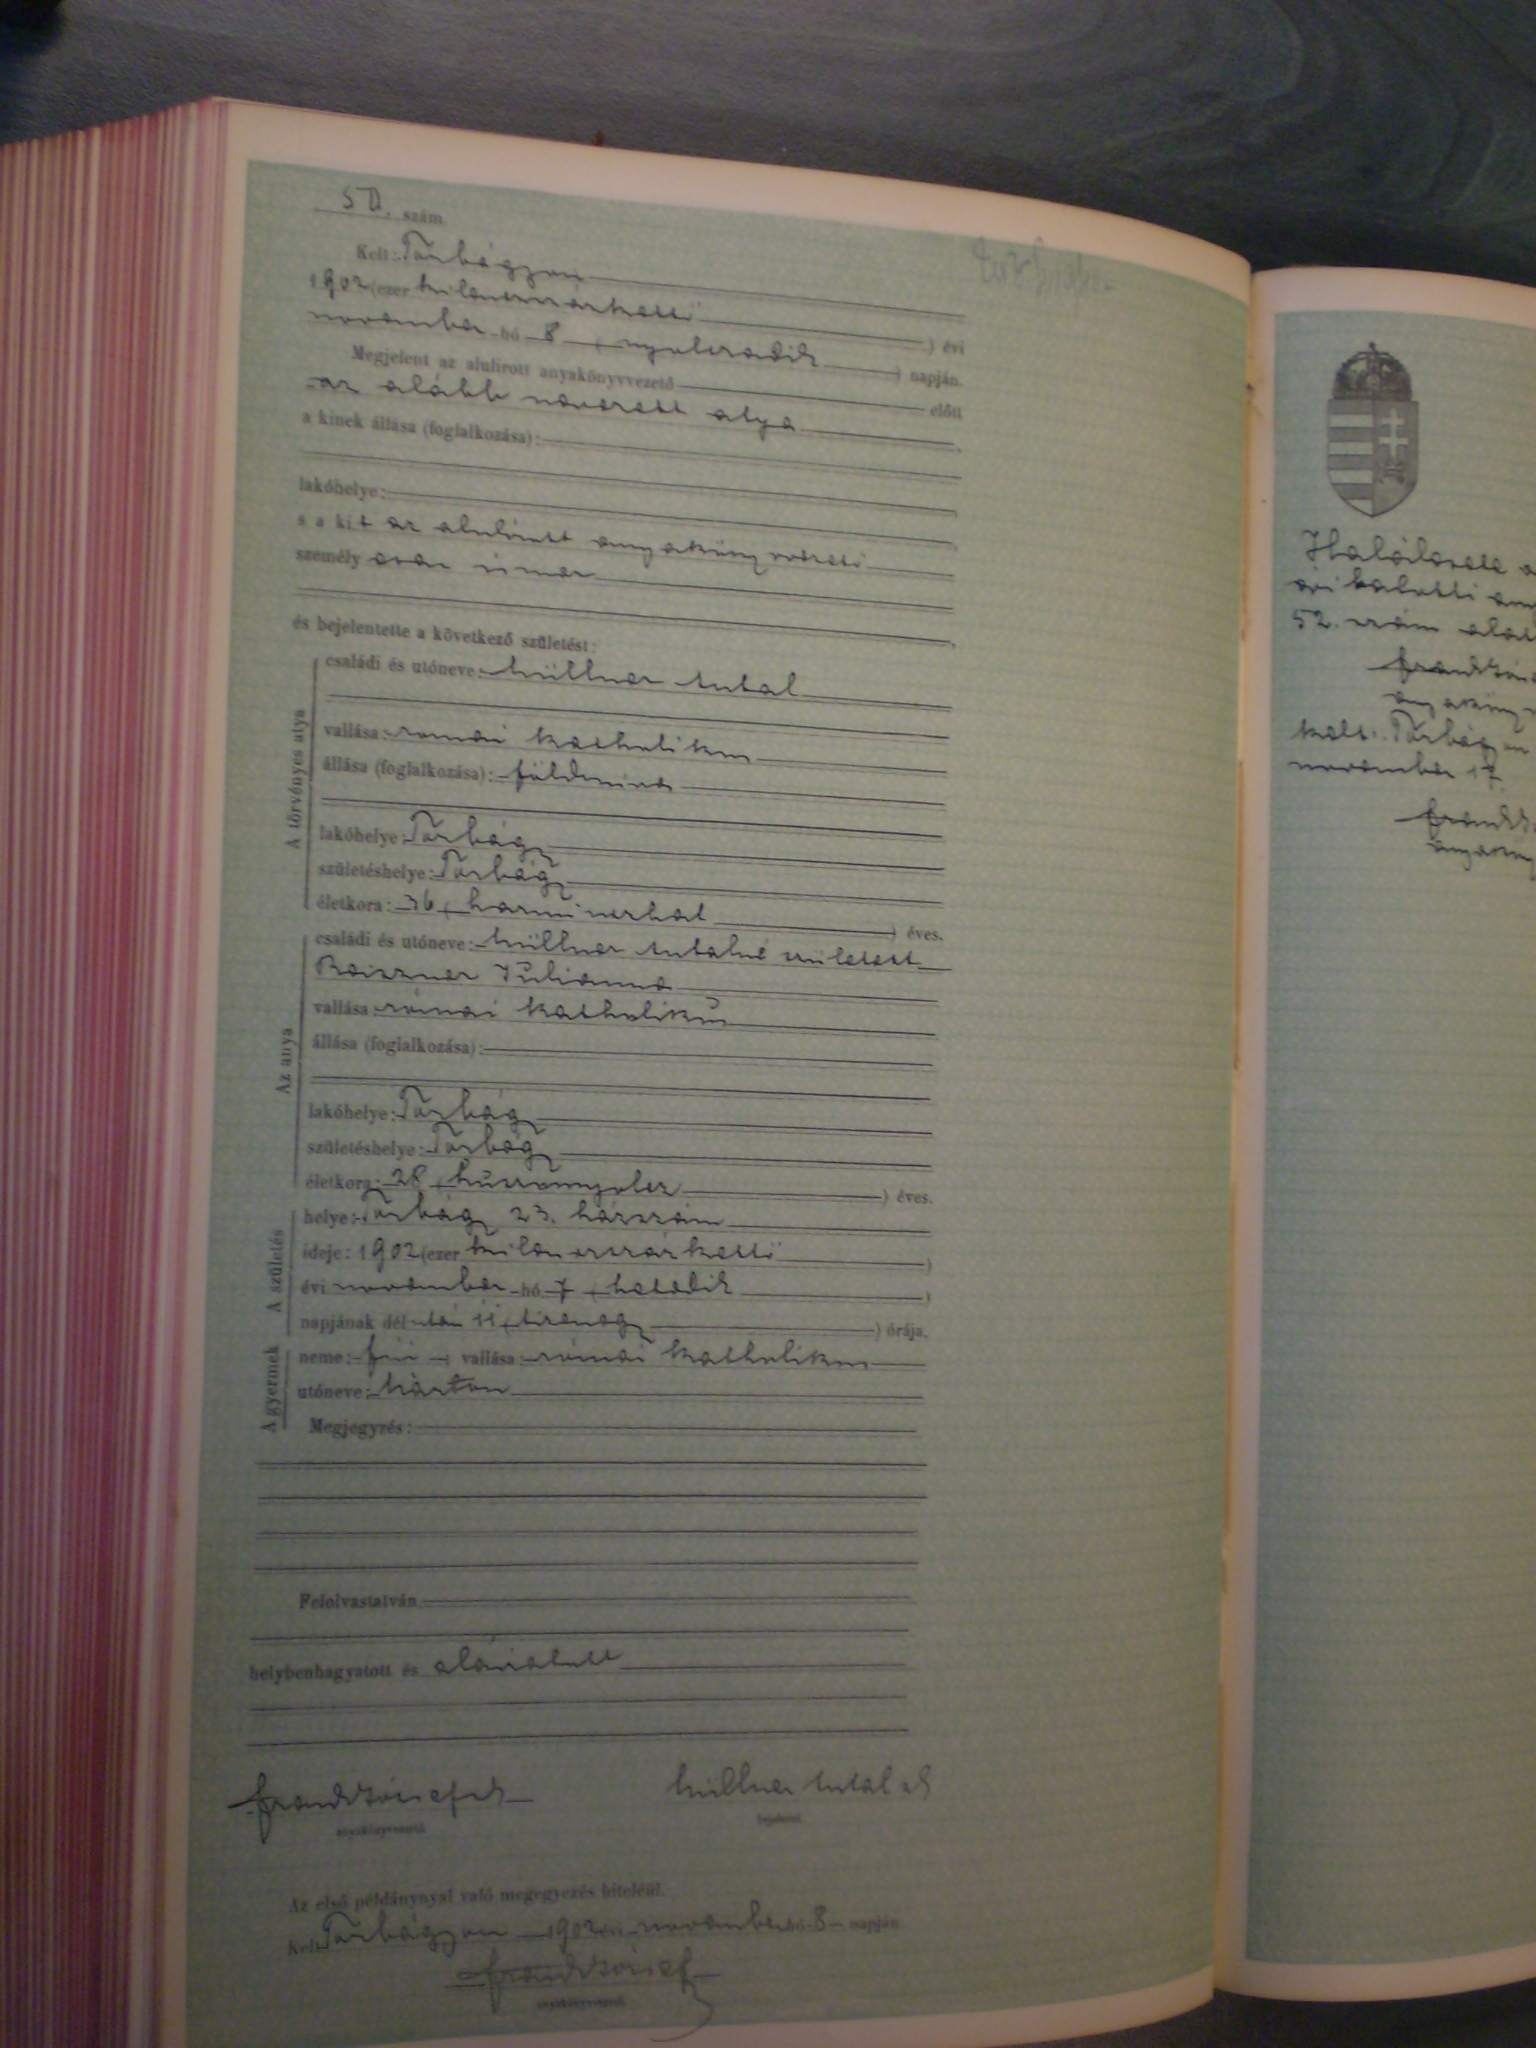 50. szám
Kelt: Torbágyon
1902 (ezer kilencszázkettő) évi
november hó 8 (nyolczadik) napján.
Megjelent az alulirott anyakönyvvezető előtt
az alább nevezett atya,
a kinek állása (foglalkozása):
lakóhelye:
s a kit az alulirott anyakönyvvezető
személyesen ismer
és bejelentette a következő születést:
A törvényes atya
családi és utóneve: Müllner Antal
vallása: romai katholikus
állása (foglalkozása): földmives
lakóhelye: Torbágy
születéshelye: Torbágy
életkora: 36 (harminczhat) éves.
Az anya
családi és utóneve: Müllner Antalné született
Julianna
vallása: római katholikus
állása (foglalkozása):
lakóhelye: Torbágy
születéshelye: Torbágy
életkora: 28 (huszonnyolcz) éves.
A születés
helye: Torbágy 23. házszám
ideje: 1902 (ezer kilenczszázkettő)
évi november hó 7 (hetedik)
napjának délután 11 (tizenegy) órája.
A gyermek
neme: fiú; vallása: római katholikus
utóneve: Márton
Megjegyzés:
Felolvastatván,
helybenhagyatott és aláiratott
anyakönyvvezető.
Müllner Antal
bejelentő.
Az első példánynyal való megegyezés hiteléül.
Kelt Torbágyon 1902 évi november hó 8 napján
anyakönyvvezető.
52. szám alatt
november 17